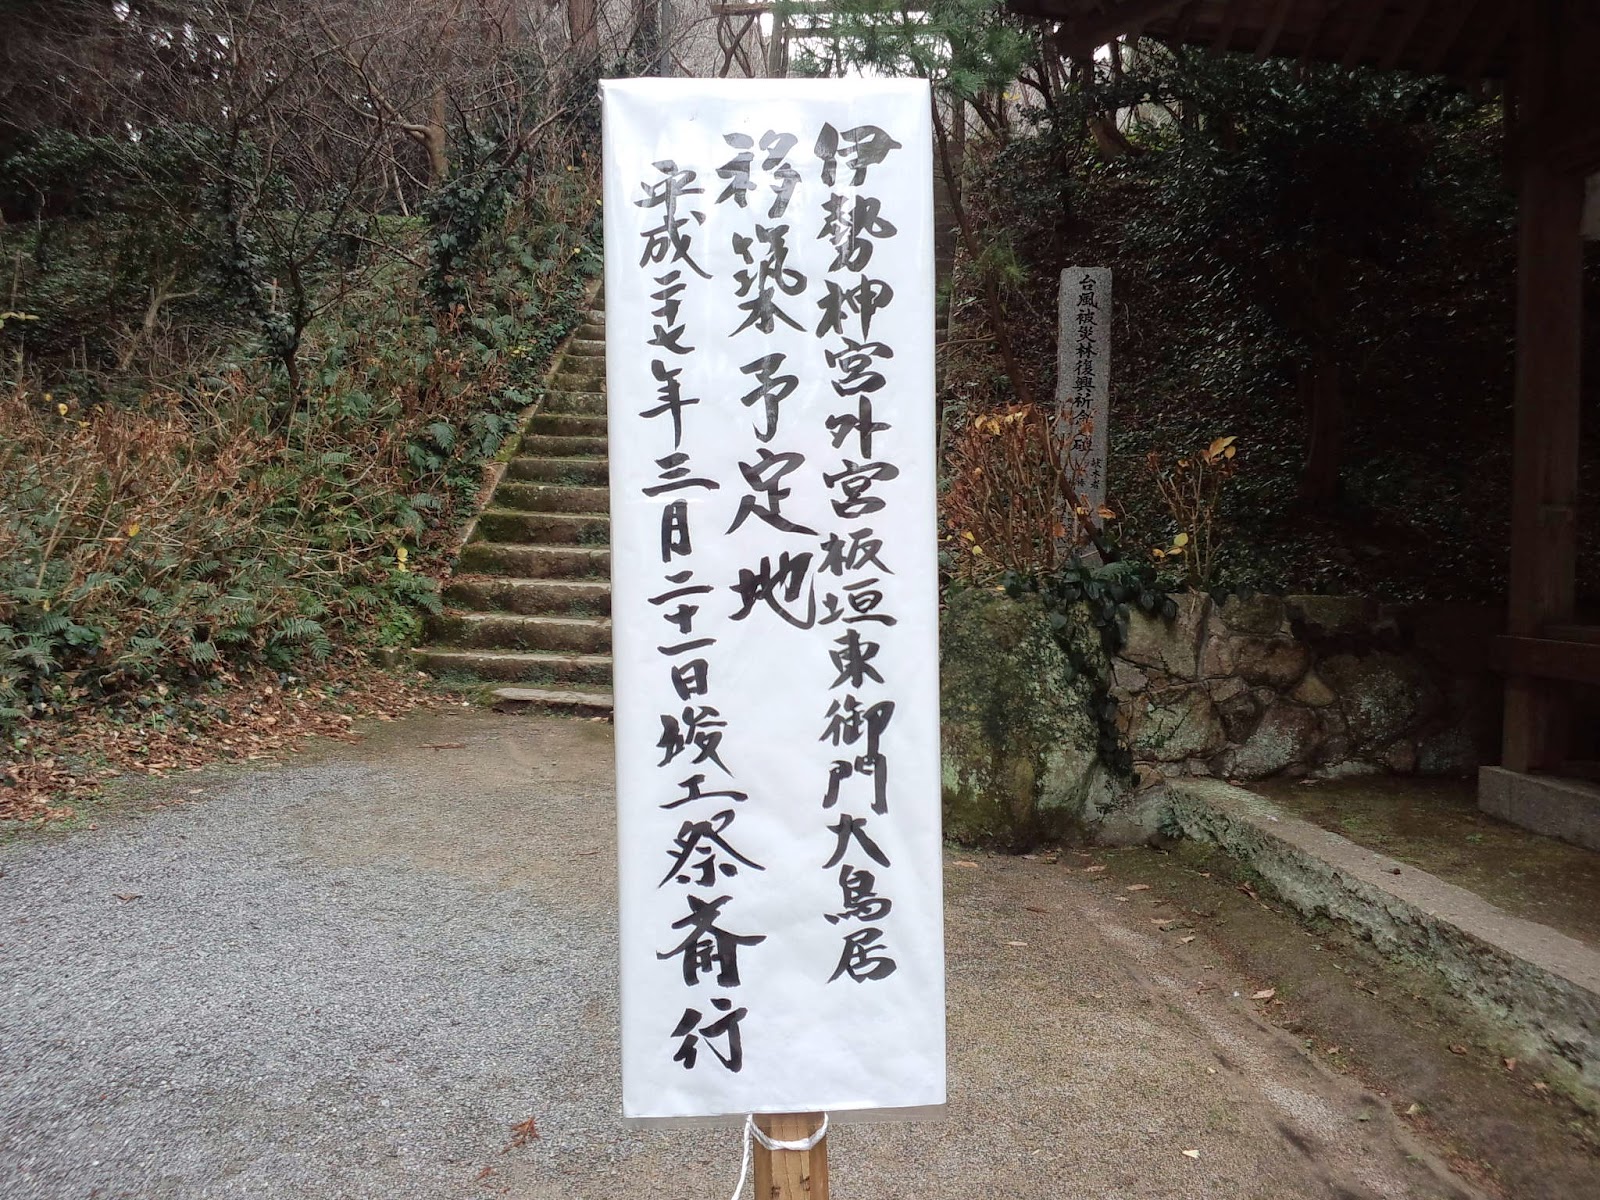 伊勢神宮外宮板垣東御門大鳥居
移築予定地
平成二十七年三月二十一日竣工祭斎行
台風被災林復興祈念碑